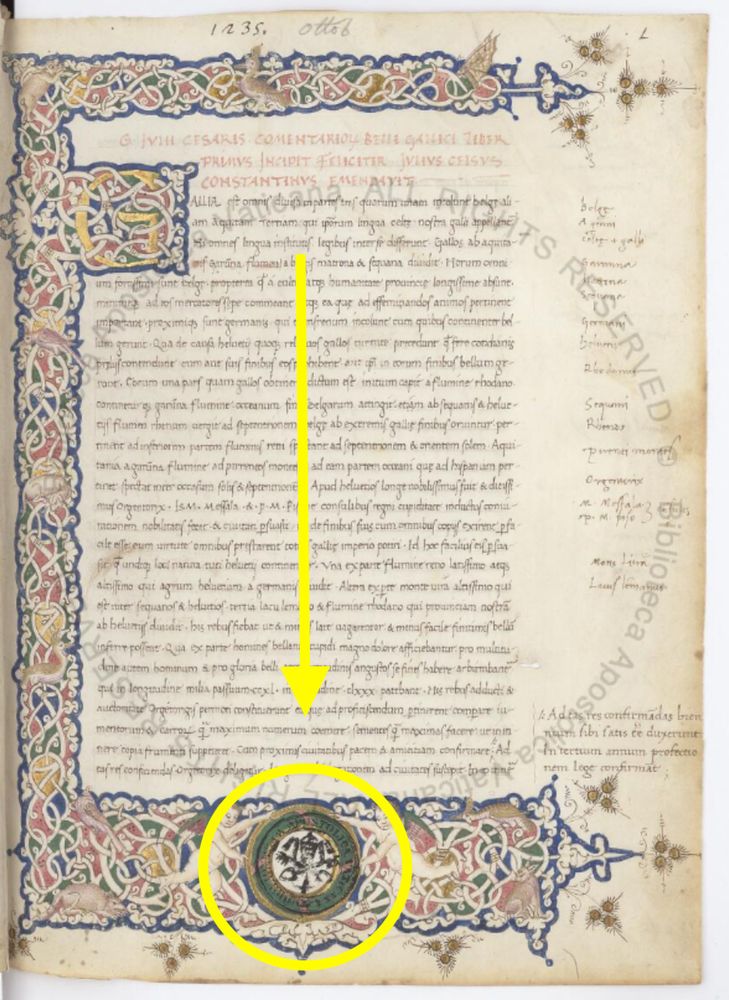 1235. Ottob
1
G IVLII CESARIS COMENTARIOꝶ BELLI GALLICI LIBER
PRIMVS INCIPIT FELICITER IVLIVS CELSVS
CONSTANTINVS EMENDAVIT
GALLIA est omnis divisa in partes tres quarum unam incolunt belgę ali-
am aquitani Tertiam qui ipsorum lingua celtę nostra galli appellant
Hi omnes lingua institutis legibus inter se differunt. Gallos ab aquita-
nis garūna flumen a belgis matrona & sequana dividit. Horum omni
um fortissimi sunt belgę. propterea a cultu atqs humanitate provincię longissime absunt.
minime ad eos mercatores sępe commeant atqs ea que ad effeminandos animos pertinent
important. proximiqs sunt germanis. qui trans rhenum incolunt cum quibus continenter bel-
lum gerunt. Qua de causa helvetii quoqs reliquos gallos virtute precedunt fere cotidianis
pręliis contendunt cum aut suis finibus eos prohibent. aut ipsi in eorum finibus bellum ge-
runt. Eorum una pars quam gallos obtinere dictum est initium capit a flumine rhodano.
continetur garūna flumine. occeanum finibus belgarum attingit. etiam ab sequanis & helve-
tiis flumen rhenum vergit ad septentrionem belgę ab extremis gallię finibus oriuntur. per-
tinent ad inferiorem partem fluminis reni spectant ad septentrionem & orientem solem. Aqui
tania a garūna flumine ad pirreneos montes & ad eam partem occeani quę ad hispaniam per-
tinet spectat inter occasum solis & septentrionem. Apud helvetios longe nobilissimus fuit & ditissi-
mus Orgetorix. Is M. Messala. & P. M. Pisone consulibus regni cupiditate inductus coniu-
rationem nobilitatis fecit. & civitati persuasit ut de finibus suis cum omnibus copiis exirent
cile esse cum virtute omnibus prestarent totius gallię imperio potiri. Id hoc facilius eis persua-
sit undiqs loci natura tuti helvetii continentur. Una ex parte flumine reno latissimo atqs
altissimo qui agrum helvetium a germanis dividit. Altera ex parte monte iura altissimo qui
est inter sequanos & helvetios. tertia lacu lemano & flumine rhodano qui provinciam nostrā
ab helvetiis dividit. his rebus fiebat ut & minus late vagarentur & minus facile finitimis bellū
inferre possent. Qua ex parte homines bellandi cupidi magno dolore afficiebantur. pro multitu
dine autem hominum & pro gloria belli angustos se fines habere arbitrabantur
qui in longitudine milia passuum ccxl. in latitudine clxxx patebant. His rebus adducti &
auctoritate Orgetorigis permoti constituerunt ea quę ad proficiscendum pertinerent comparare iu-
mentorum & carroꝶ maximum numerum coemere. sementes maximas facere ut in iti
nere copia frumenti suppeteret. Cum proximis civitatibus pacem & amicitiam confirmare. Ad
eas res conficiendas Orgetorix deligitur. Is legationem ad civitates suscepit. In eo itinere
Belgę
Aquitani
celtę & galli
Garunna
Matrona
Sequana
Germani
helvetii
Rhodanus
Sequani
Rhenus
pirenei montes
Orgetorix
M. Messala
P. M. piso
Mons Iura
Lacus lemanus
Ad eas res conficiendas bien
nium sibi satis eē duxerunt
In tertium annum profectio
nem lege confirmāt
© Biblioteca Apostolica Vaticana, ALL RIGHTS RESERVED